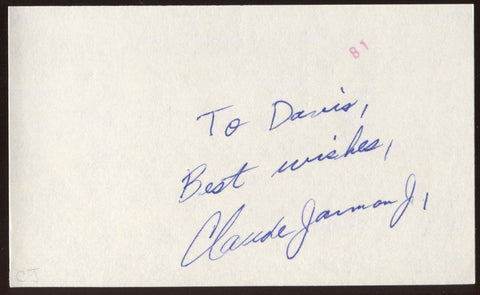 81
To Davis,
Best wishes,
Claude Jarman Jr,
CJ